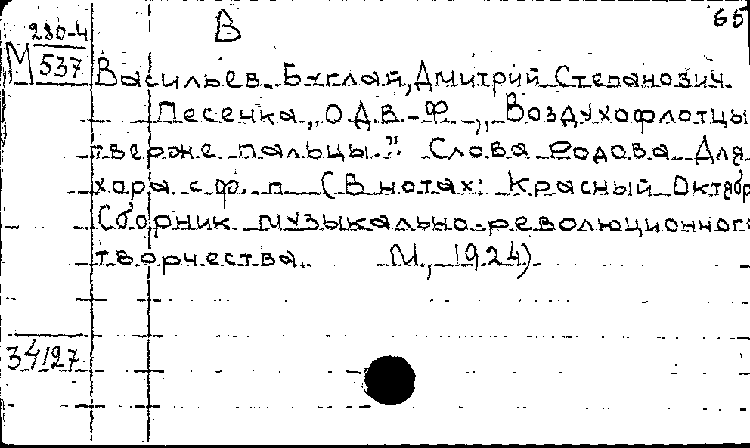 В 65
280-4
М 537
Васильев-Буглай, Дмитрий Степанович
Песенка, О.Д.В.-Ф „Воздухофлотцы
тверже пальцы." Слова Родова Для
хора с ф. п (В нотах: Красный Октябр
Сборник музыкально-революционного
творчества. М., 1924)
34127